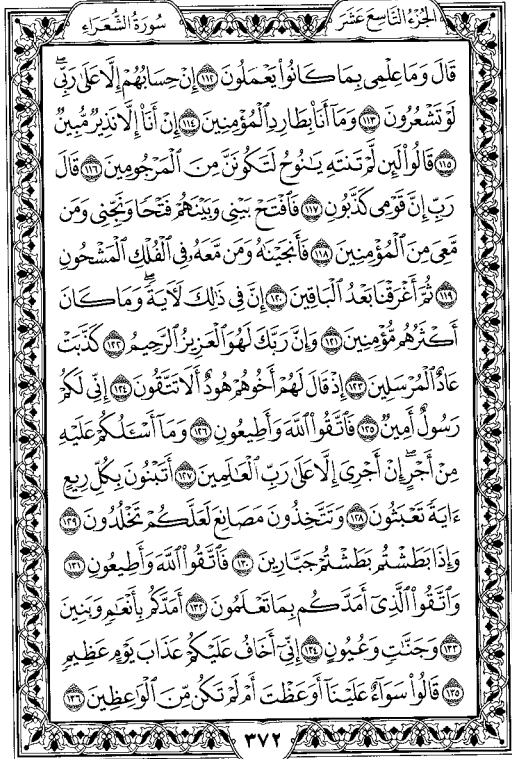 الجزء التاسع عشر
سورة الشعراء
قَالَ وَمَا عِلْمِى بِمَا كَانُوا۟ يَعْمَلُونَ ١١٢ إِنْ حِسَابُهُمْ إِلَّا عَلَىٰ رَبِّى ۖ
لَوْ تَشْعُرُونَ ١١٣ وَمَآ أَنَا۠ بِطَارِدِ ٱلْمُؤْمِنِينَ ١١٤ إِنْ أَنَا۠ إِلَّا نَذِيرٌ مُّبِينٌ
١١٥ قَالُوا۟ لَئِن لَّمْ تَنتَهِ يَـٰنُوحُ لَتَكُونَنَّ مِنَ ٱلْمَرْجُومِينَ ١١٦ قَالَ
رَبِّ إِنَّ قَوْمِى كَذَّبُونِ ١١٧ فَٱفْتَحْ بَيْنِى وَبَيْنَهُمْ فَتْحًا وَنَجِّنِى وَمَن
مَّعِىَ مِنَ ٱلْمُؤْمِنِينَ ١١٨ فَأَنجَيْنَـٰهُ وَمَن مَّعَهُۥ فِى ٱلْفُلْكِ ٱلْمَشْحُونِ
١١٩ ثُمَّ أَغْرَقْنَا بَعْدُ ٱلْبَاقِينَ ١٢٠ إِنَّ فِى ذَٰلِكَ لَـَٔايَةً ۖ وَمَا كَانَ
أَكْثَرُهُم مُّؤْمِنِينَ ١٢١ وَإِنَّ رَبَّكَ لَهُوَ ٱلْعَزِيزُ ٱلرَّحِيمُ ١٢٢ كَذَّبَتْ
عَادٌ ٱلْمُرْسَلِينَ ١٢٣ إِذْ قَالَ لَهُمْ أَخُوهُمْ هُودٌ أَلَا تَتَّقُونَ ١٢٤ إِنِّى لَكُمْ
رَسُولٌ أَمِينٌ ١٢٥ فَٱتَّقُوا۟ ٱللَّهَ وَأَطِيعُونِ ١٢٦ وَمَآ أَسْـَٔلُكُمْ عَلَيْهِ
مِنْ أَجْرٍ ۖ إِنْ أَجْرِىَ إِلَّا عَلَىٰ رَبِّ ٱلْعَـٰلَمِينَ ١٢٧ أَتَبْنُونَ بِكُلِّ رِيعٍ
ءَايَةً تَعْبَثُونَ ١٢٨ وَتَتَّخِذُونَ مَصَانِعَ لَعَلَّكُمْ تَخْلُدُونَ ١٢٩
وَإِذَا بَطَشْتُم بَطَشْتُمْ جَبَّارِينَ ١٣٠ فَٱتَّقُوا۟ ٱللَّهَ وَأَطِيعُونِ ١٣١
وَٱتَّقُوا۟ ٱلَّذِىٓ أَمَدَّكُم بِمَا تَعْلَمُونَ ١٣٢ أَمَدَّكُم بِأَنْعَـٰمٍ وَبَنِينَ
١٣٣ وَجَنَّـٰتٍ وَعُيُونٍ ١٣٤ إِنِّىٓ أَخَافُ عَلَيْكُمْ عَذَابَ يَوْمٍ عَظِيمٍ
١٣٥ قَالُوا۟ سَوَآءٌ عَلَيْنَآ أَوَعَظْتَ أَمْ لَمْ تَكُن مِّنَ ٱلْوَٰعِظِينَ ١٣٦
٣٧٢